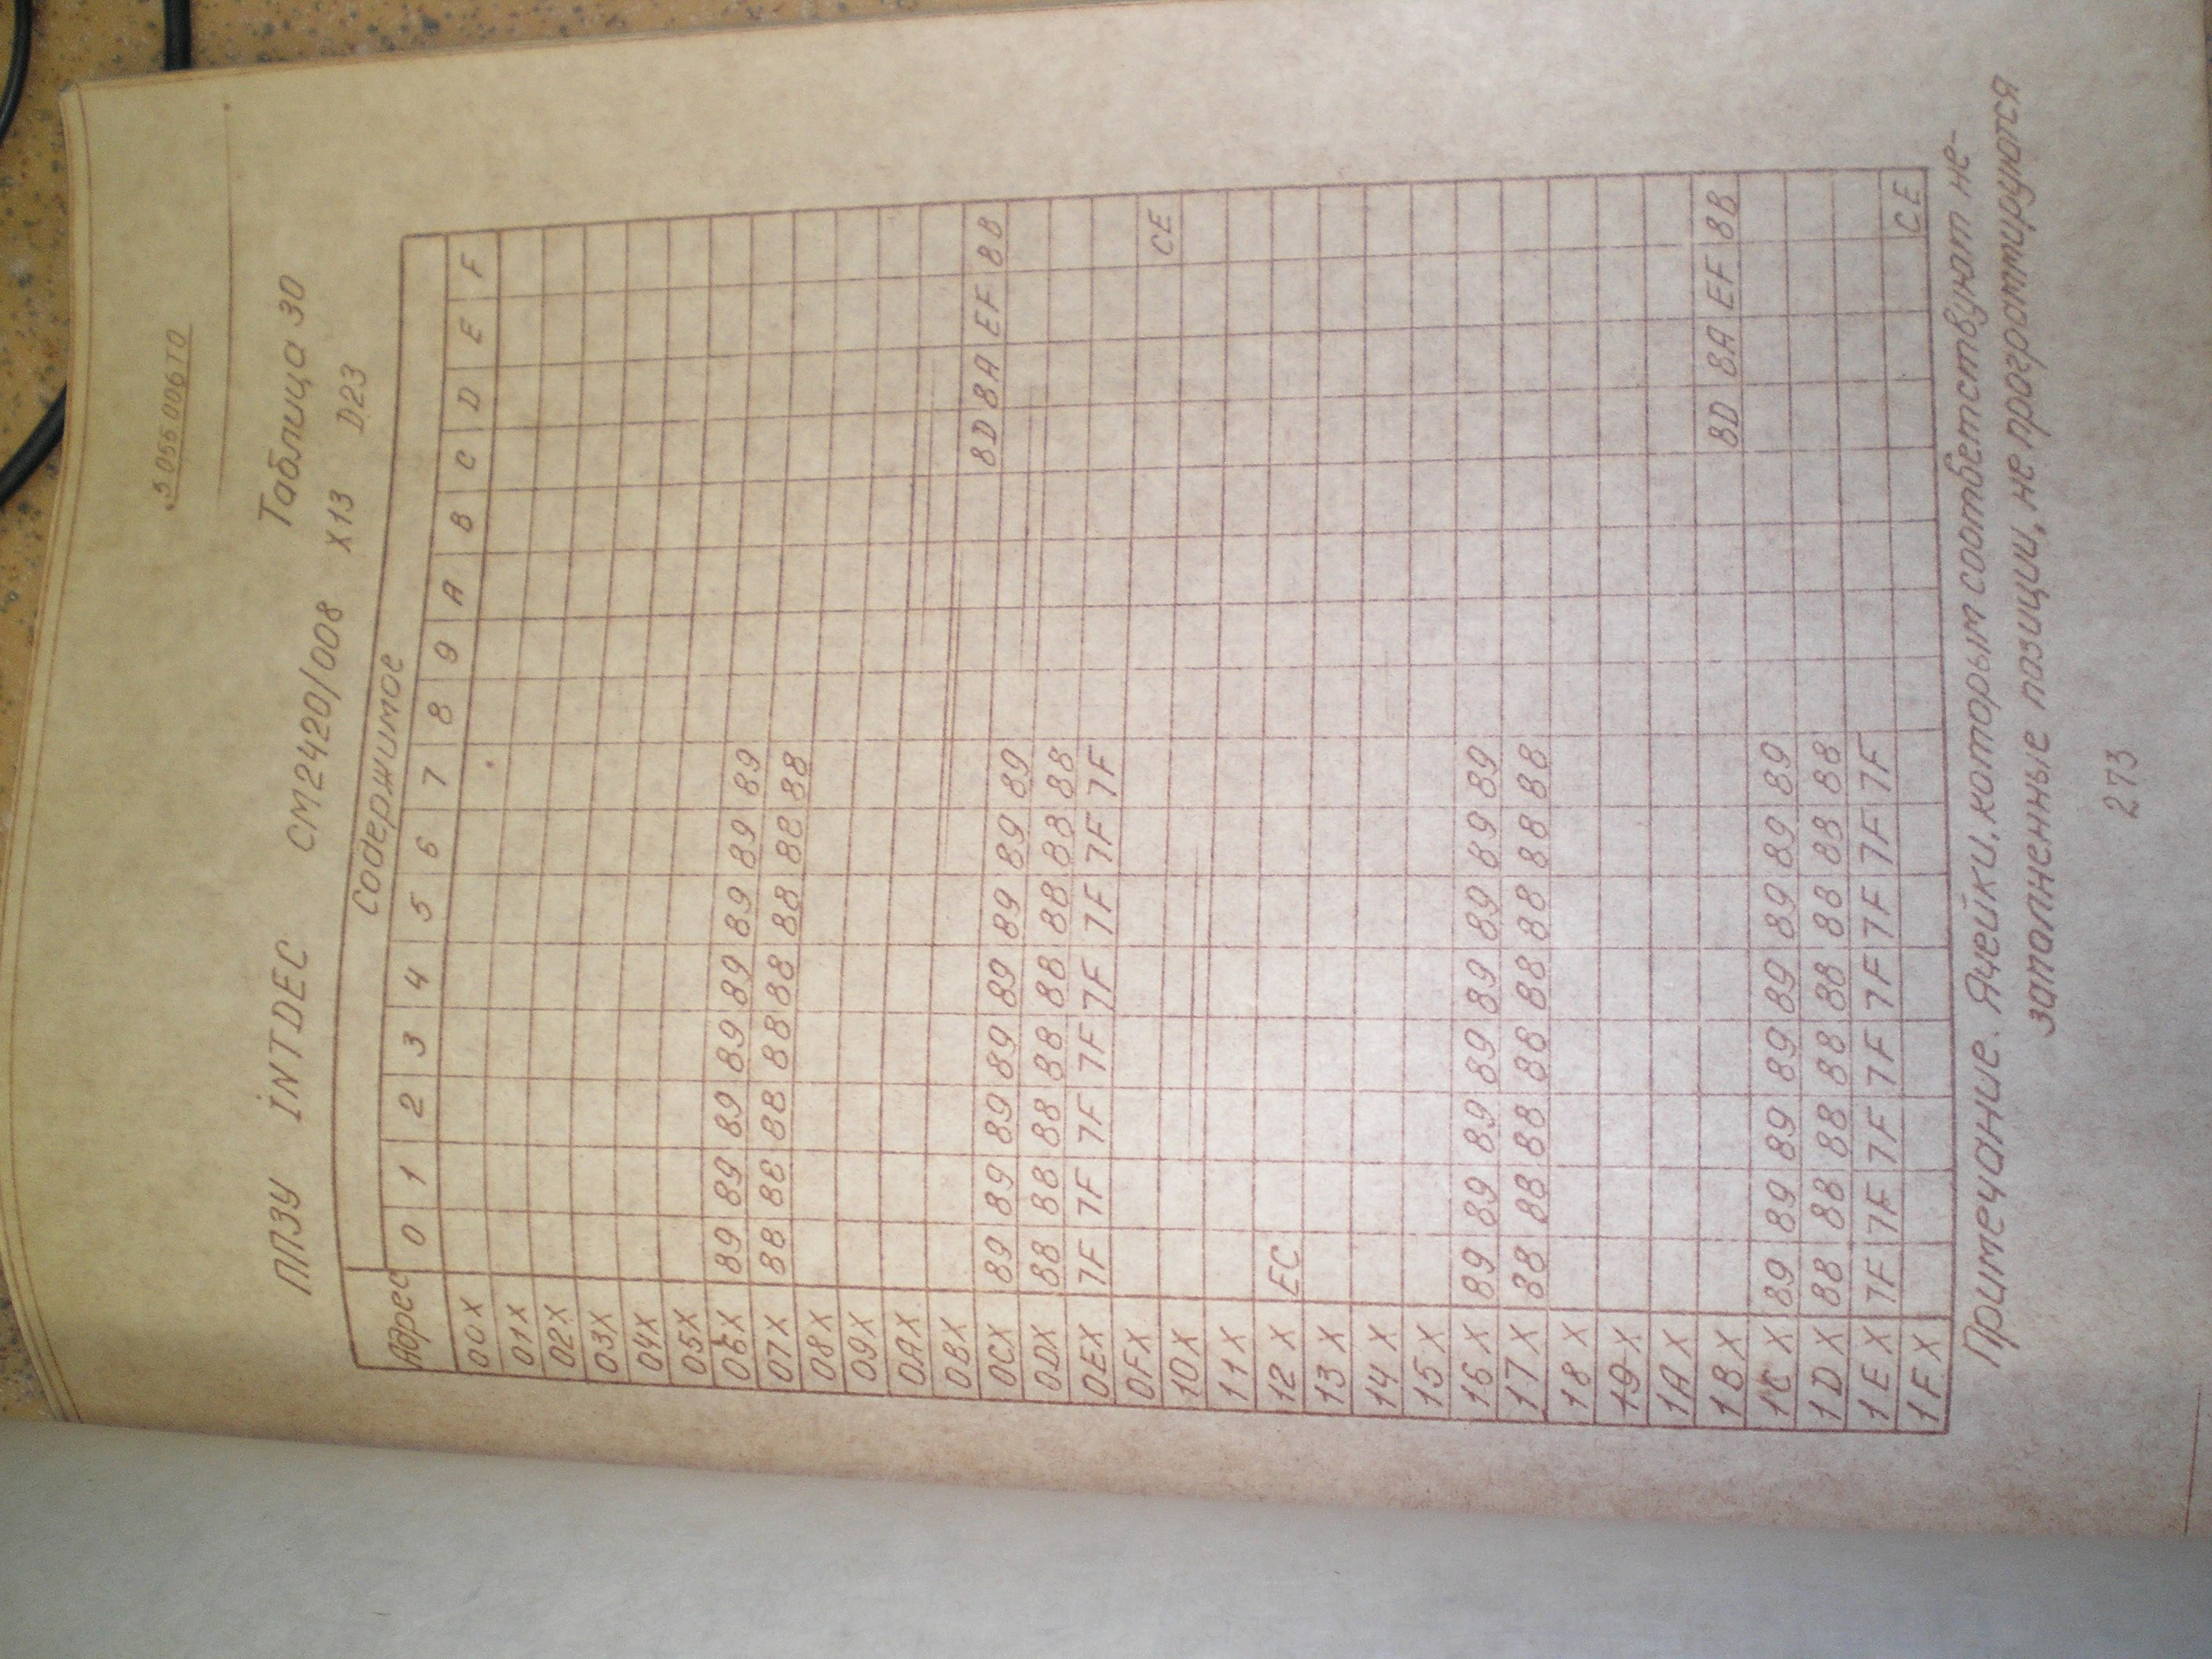 3 055 006 ТО
Таблица 30
ППЗУ INTDEC СМ2420/008 X13 D23
Адрес Содержимое
0 1 2 3 4 5 6 7 8 9 A B C D E F
00X
01X
02X
03X
04X
05X
06X 89 89 89 89 89 89 89 89
07X 88 88 88 88 88 88 88 88
08X
09X
0AX
0BX
0CX 89 89 89 89 89 89 89 89 8D 8A EF 8B
0DX 88 88 88 88 88 88 88 88
0EX 7F 7F 7F 7F 7F 7F 7F 7F
0FX CE
10X
11X
12X EC
13X
14X
15X
16X 89 89 89 89 89 89 89 89
17X 88 88 88 88 88 88 88 88
18X
19X
1AX
1BX 8D 8A EF 8B
1CX 89 89 89 89 89 89 89 89
1DX 88 88 88 88 88 88 88 88
1EX 7F 7F 7F 7F 7F 7F 7F 7F
1FX CE
Примечание. Ячейки, которым соответствуют не-
заполненные позиции, не программируются
273